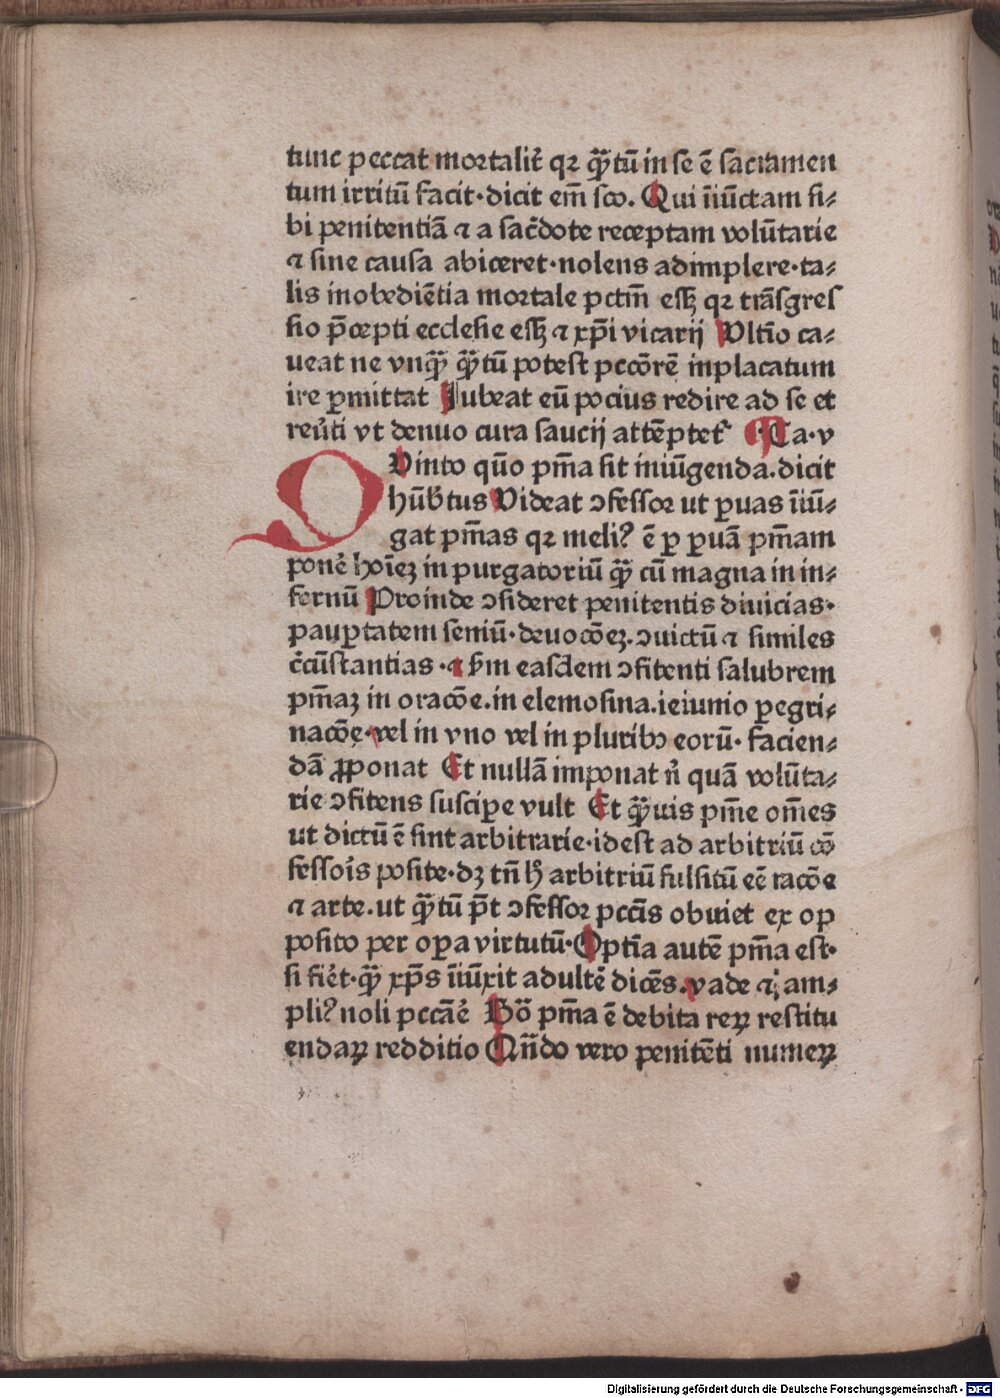 tunc peccat mortalit̃ qꝛ qᷓtũ in se ẽ sacramen
tum irritũ facit·dicit em̃ sco. Qui ĩiũctam si⸗
bi penitentiã ⁊ a sac̃dote receptam volũtarie
⁊ sine causa abiceret·nolens adimplere·ta⸗
lis inobediẽtia mortale pctm̃ essꝫ qꝛ trãsgres
sio p̃cepti ecclesie essꝫ ⁊ xp̃i vicarij Vltĩo ca⸗
ueat ne vnqᷓ qᷓtũ potest pccõrẽ inplacatum
ire ꝑmittat Iubeat eũ pocius redire ad se et
reũti vt denuo cura saucij attẽptet᷑ Ca·v
QVinto qũo pm̃a sit iniũgenda.dicit
hũb̃tus Videat ↄfessor ut ꝑuas ĩiũ⸗
gat pm̃as qꝛ meliꝰ ẽ ꝑ ꝑuã pm̃am
ponẽ hoĩeꝫ in purgatoriũ qᷓ cũ magna in in⸗
fernũ Proinde ↄsideret penitentis diuicias·
pauꝑtatem seniũ·deuocõeꝫ.ↄuictũ ⁊ similes
c̃cũstantias·⁊ s̃m easdem ↄfitenti salubrem
pm̃aꝫ in oracõe.in elemosina.ieiunio ꝑegri⸗
nacõe·vel in vno vel in pluribꝰ eorũ· facien⸗
dã ꝓponat Et nullã imponat n̉ quã volũta⸗
rie ↄfitens suscipe vult Et qᷓuis pm̃e om̃es
ut dictũ ẽ sint arbitrarie·idest ad arbitriũ cõ
fessoĩs posite·dꝫ tñ h̃ arbitriũ fulsitũ eẽ racõe
⁊ arte.ut qᷓtũ p̃t ↄfessor pccĩs obuiet ex op
posito per oꝑa virtutũ·Optĩa autẽ pm̃a est·
si fiẽt·qᷓ xp̃s ĩiũxit adultẽ dicẽs.vade ⁊ am⸗
pliꝰ noli pccãẽ Bõ pm̃a ẽ debita reꝝ restitu
endaꝝ redditio Qñdo vero penitẽti numeꝝ
Digitalisierung gefördert durch die Deutsche Forschungsgemeinschaft - DFG